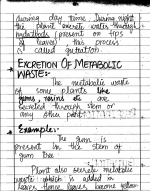 during day time. During night
the plant excrete water through
hydathods (present on tips
of leaves), this process
is called guttation.
EXCRETION OF METABOLIC
WASTE:-
The metabolic waste
of some plants like
gums, resins etc are
excreted through stem or
any other part.
Example:-
The gum is
present in the stem of
gum tree
Plant also secrete metabolic
waste which is added in
leaves these leaves become yellow